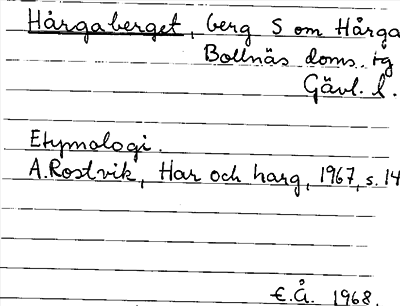 Hårgaberget, berg S om Hårga
Bollnäs doms. tg
Gävl. l.
Etymologi.
A. Rostvik, Har och harg, 1967, s. 14
E.Å. 1968.